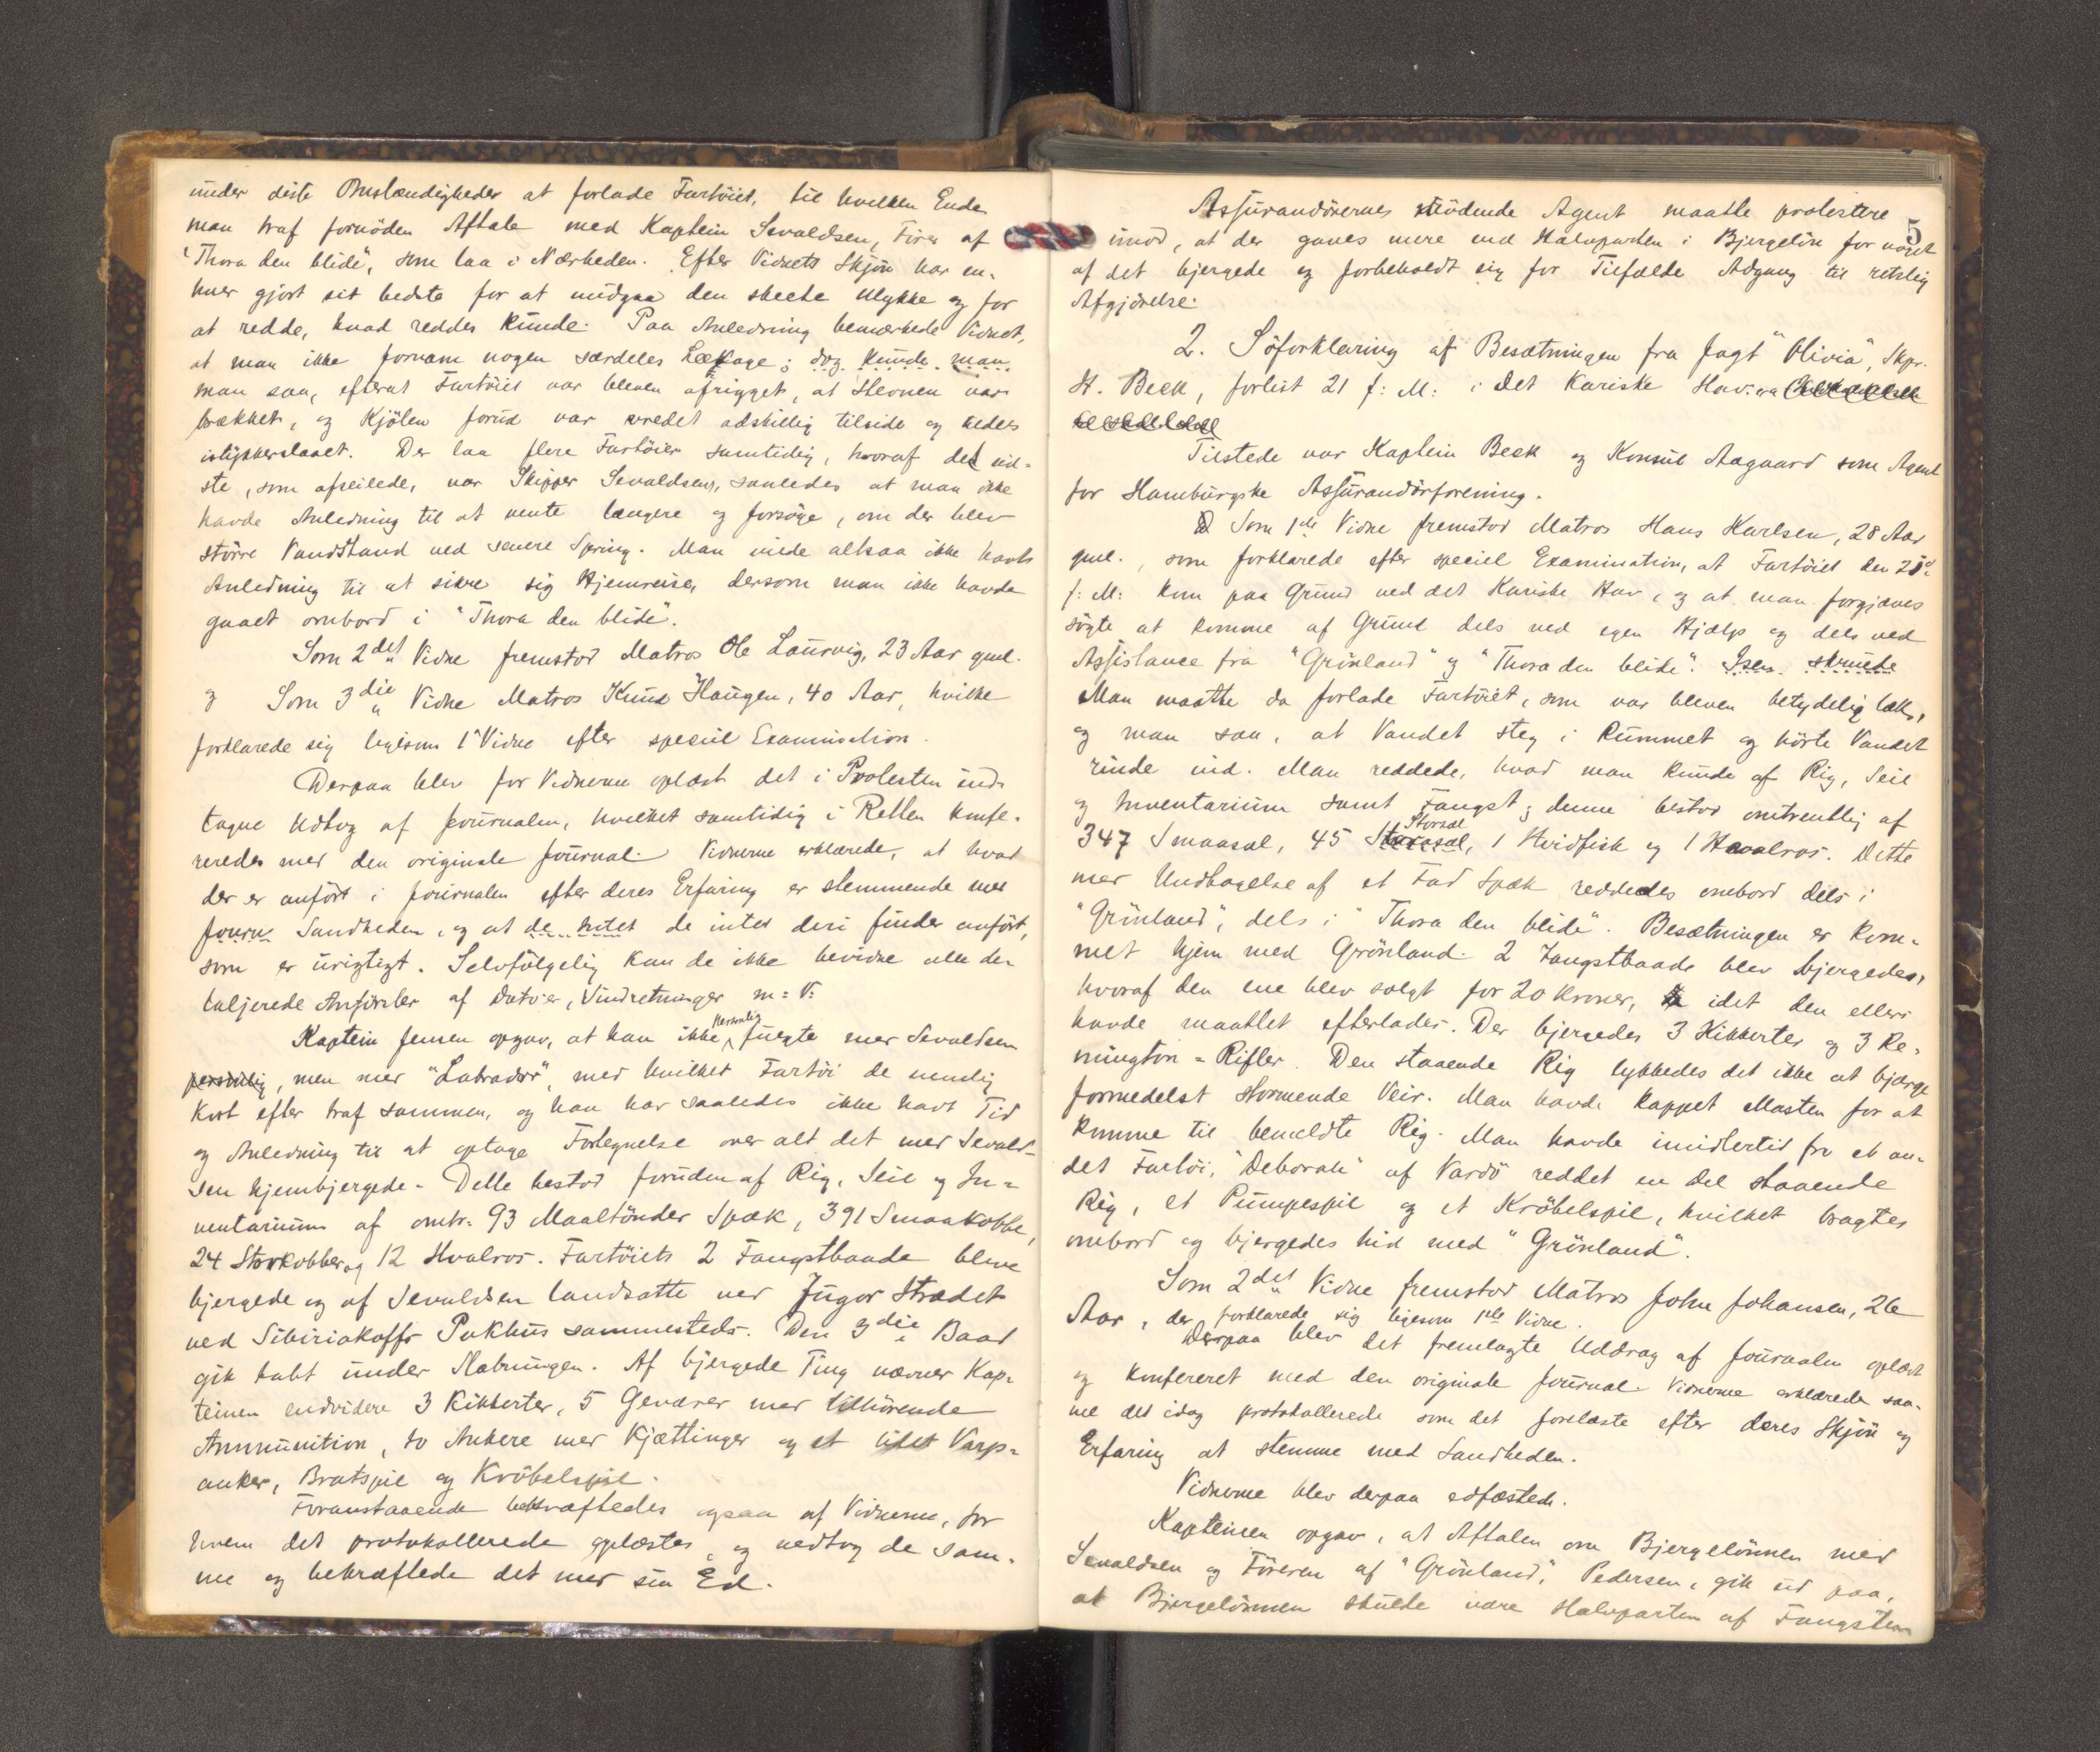 under disse Omstændigheder at forlade Fartöiet, til hvilken Ende
man traf fornöden Aftale med Kaptein Sevaldsen, Förer af
"Thora den blide", som laa i Nærheden. Efter Vidnets Skjön har en-
hver gjort sit bedste for at undgaa den skeete Ulykke og for
at redde, hvad reddes kunde. Paa Anledning bemærkede Vidnet,
at man ikke fornam nogen særdeles Lækage; dog kunde man
man saa, efterat Fartöiet var bleven afrigget, at Stevnen var
brækket, og Kjölen forud var vredet adskillig tilside og tildels
istykkerslaaet. Der laa flere Fartöier samtidig, hvoraf det sid-
ste, som afseilede, var Skipper Sevaldsens, saaledes at man ikke
havde Anledning til at vente længere og forsöge, om der blev
större Vandstand ved senere Spring. Man vilde altsaa ikke havt
Anledning til at sikre sig Hjemreise, dersom man ikke havde
gaaet ombord i "Thora den blide".
Som 2det Vidne fremstod Matros Ole Laurvig, 23 Aar gml.
og Som 3die Vidne Matros Knud Haugen, 40 Aar, hvilke
forklarede sig ligesom 1ste Vidne efter speciel Examination.
Derpaa blev for Vidnerne oplæst det i Protesten ind-
tagne Udtog af Journalen, hvilket samtidig i Retten konfe-
reredes med den originale Journal. Vidnerne erklærede, at hvad
der er anfört i Journalen efter deres Erfaring er stemmende med
Journ Sandheden, og at de intet de intet deri finder anfört,
som er urigtigt. Selvfölgelig kan de ikke bevidne alle de-
taljerede Anförsler af Datoer, Vindretninger m: V:
Kaptein Jensen opgav, at han ikke personlig fulgte med Sevaldsen
personlig, men med "Labrador", med hvilket Fartöi de nemlig
kort efter traf sammen, og han har saaledes ikke havt Tid
og Anledning til at optage Fortegnelse over alt det med Sevald-
sen hjembjergede. Dette bestod foruden af Rig, Seil og In-
ventarium af omtr. 93 Maaltönder Spæk, 391 Smaakobbe,
24 Storkobber og 12 Hvalros. Fartöiets 2 Fangstbaade bleve
bjergede og af Sevaldsen landsatte ved Jugor Strædet
ved Sibiriakoffs Pakhus sammesteds. Den 3die Baad
gik tabt under Slabningen. Af bjergede Ting nævner Kap-
teinen endvidere 3 Kikkerter, 5 Geværer med tilhörende
Ammunition, to Ankere med Kjættinger og et lidet Varp-
anker, Bratspil og Kröbelspil.
Foranstaaende bekræftedes ogsaa af Vidnerne, for
hvem det protokollerede oplæstes, og vedtog de sam-
me og bekræftede det med sin Ed.
5
Assurandörernes mödende Agent maatte protestere
imod, at der gaves mere end Halvparten i Bjergelön for noget
af det bjergede og forbeholdt sig for Tilfælde Adgang til retslig
Afgjörelse.
2. Söforklaring af Besætningen fra Jagt "Olivia", Skpr.
H. Beck, forlist 21 f: M: i det Kariske Hav.
Tilstede var Kaptein Beck og Konsul Aagaard som Agent
for Hamburgske Assurandörforening.
Som 1ste Vidne fremstod Matros Hans Karlsen, 28 Aar
gml., som forklarede efter speciel Examination, at Fartöiet den 21de
f: M: kom paa Grund ved det Kariske Hav, og at man forgjæves
sögte at komme af Grund dels ved egen Hjælp og dels ved
Assistance fra "Grönland" og "Thora den blide". Isen skruede
Man maatte da forlade Fartöiet, som var bleven betydelig læk,
og man saa, at Vandet steg i Rummet og hörte Vandet
rinde ind. Man reddede, hvad man kunde af Rig, Seil
og Inventarium samt Fangst; denne bestod omtrentlig af
347 Smaasæl, 45 Storsæl Storsæl, 1 Hvidfisk og 1 Hvalros. Dette
med Undtagelse af et Fad Spæk reddedes ombord dels i
"Grönland", dels i "Thora den blide". Besætningen er kom-
met hjem med Grönland. 2 Fangstbaade blev bjergedes,
hvoraf den ene blev solgt for 20 Kroner, idet den ellers
havde maattet efterlades. Der bjergedes 3 Kikkerter og 3 Re-
mington-Rifler. Den staaende Rig lykkedes det ikke at bjærge
formedelst stormende Veir. Man havde kappet Masten for at
komme til bemeldte Rig. Man havde imidlertid fra et an-
det Fartöi, "Deborah" af Vardö reddet en Del staaende
Rig, et Pumpespil og et Kröbelspil, hvilket bragtes
ombord og bjergedes hid med "Grönland".
Som 2det Vidne fremstod Matros John Johansen, 26
Aar, der forklarede sig ligesom 1ste Vidne.
Derpaa blev det fremlagte Uddrag af Journalen oplæst
og konfereret med den originale Journal. Vidnerne erklærede saa-
vel det idag protokollerede som det forelæste efter deres Skjön og
Erfaring at stemme med Sandheden.
Vidnerne blev derpaa edfæstede.
Kapteinen opgav, at Aftalen om Bjergelönnen med
Sevaldsen og Föreren af "Grönland", Pedersen, gik ud paa,
at Bjergelönnen skulde være Halvparten af Fangsten